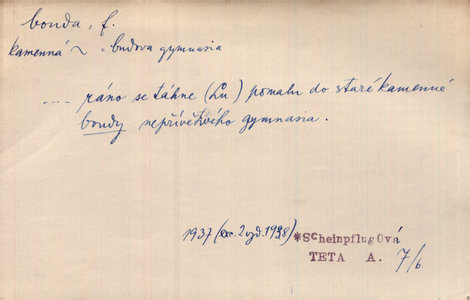 bouda, f.
kamenná ~ „budova gymnasia
.... ráno se táhne (Lu) pomalu do staré kamenné
boudy nepřívětivého gymnasia.
1937 (exc. 2 vyd. 1938)
*Scheinpflugová
TETA A. 7/6